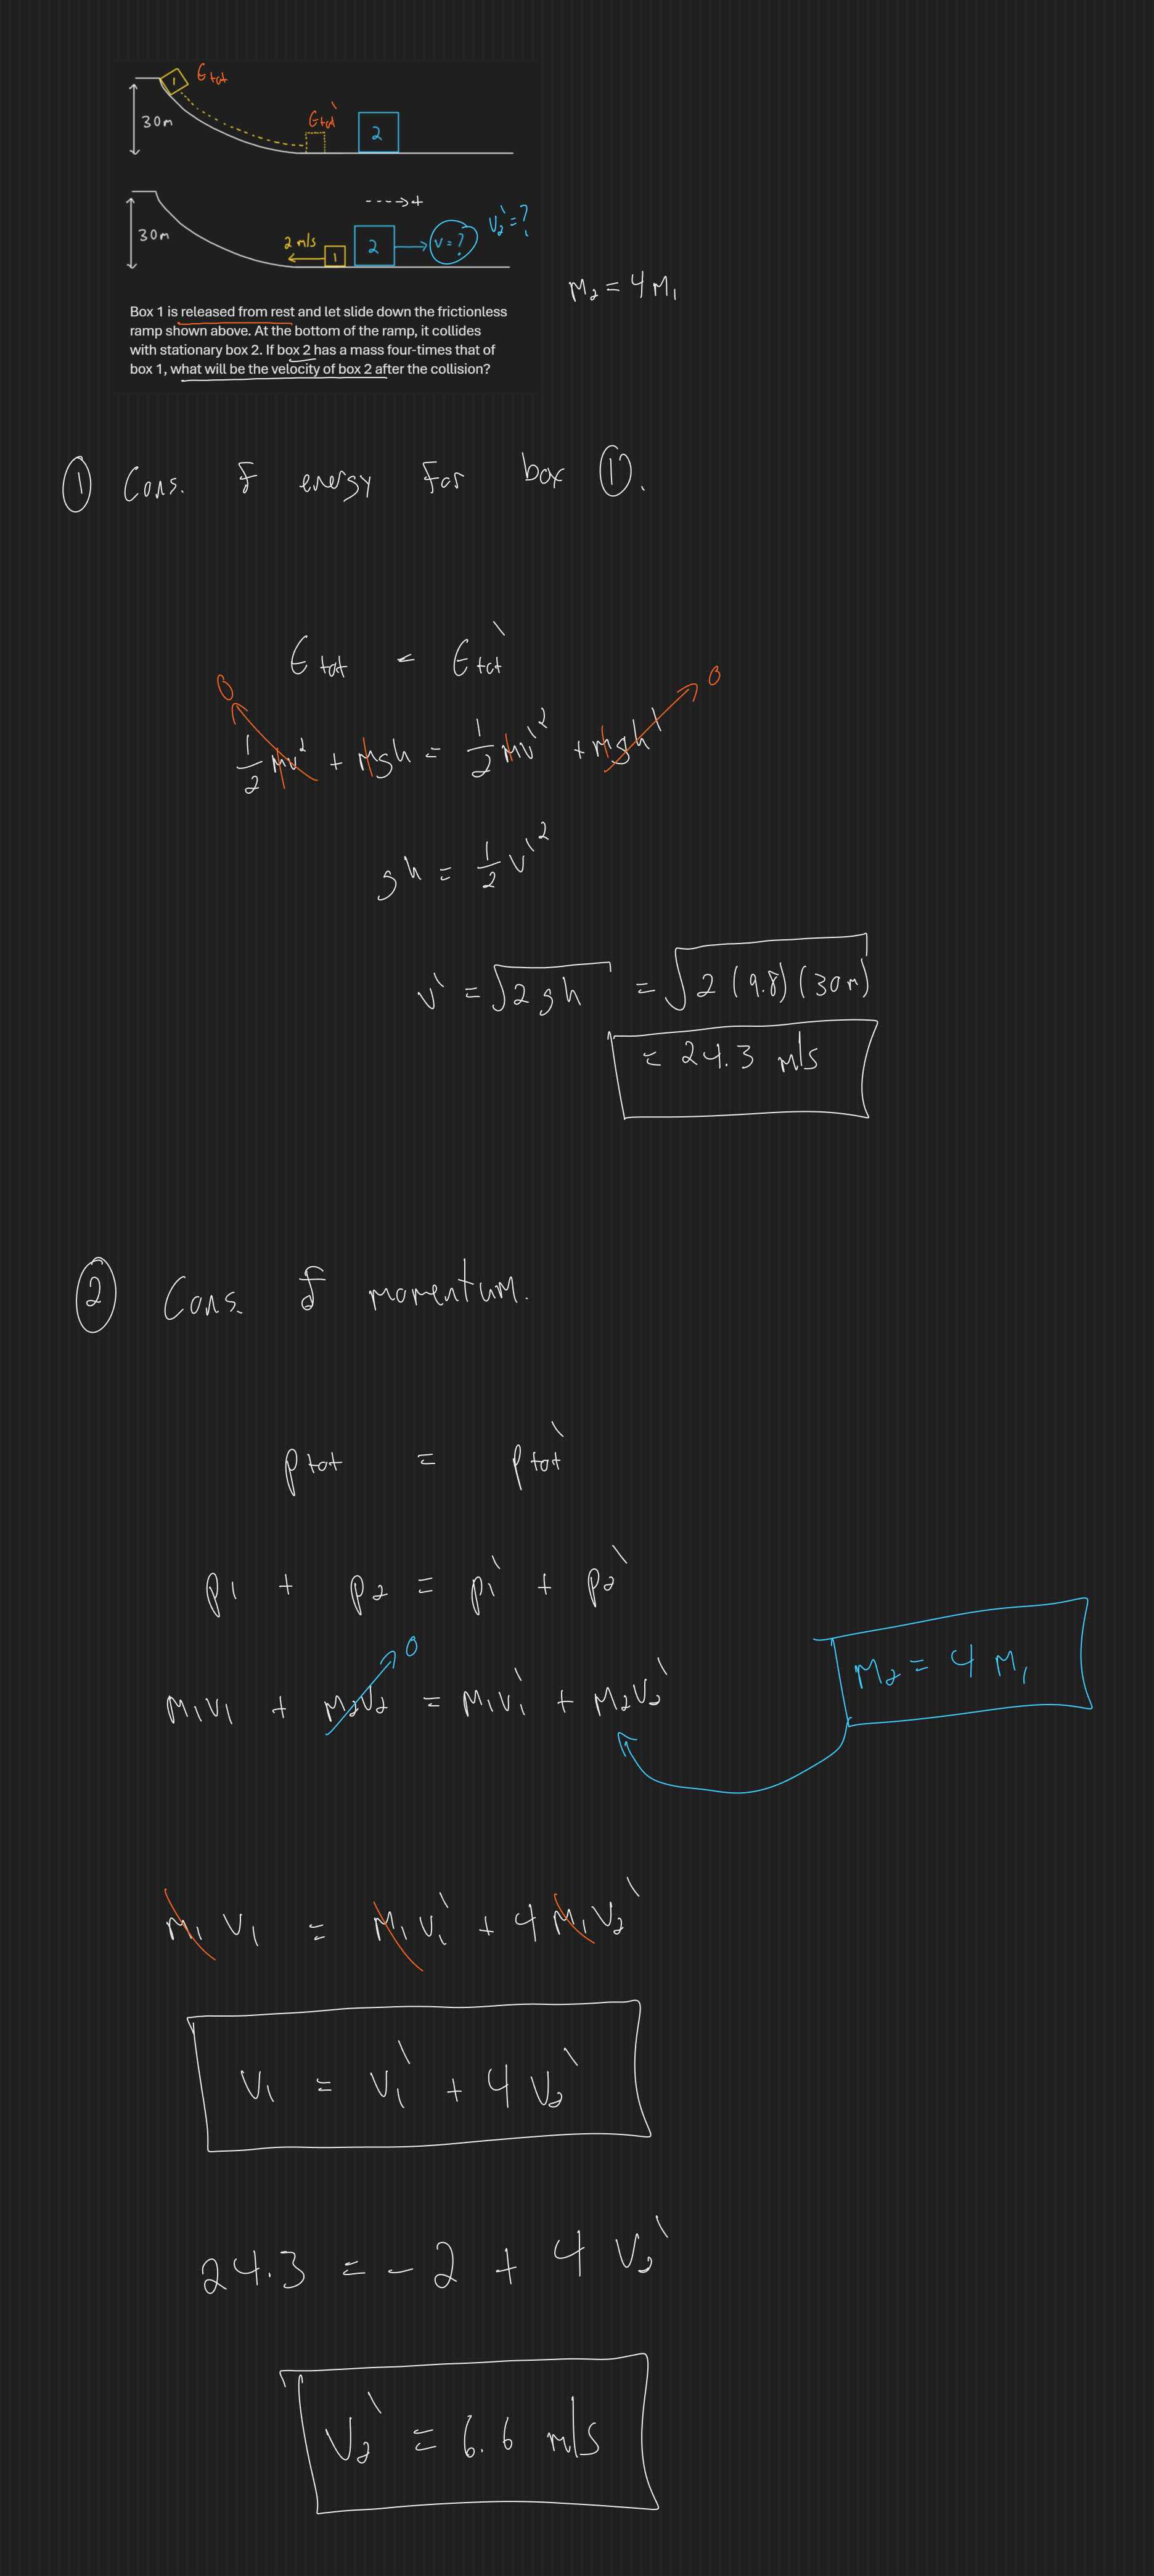 1 Etot
30m
Etot'
2
---->+
30m
2 m/s 1 2 v=? v₂'=?
M₂ = 4M₁
Box 1 is released from rest and let slide down the frictionless
ramp shown above. At the bottom of the ramp, it collides
with stationary box 2. If box 2 has a mass four-times that of
box 1, what will be the velocity of box 2 after the collision?
① Cons. of energy for box ①.
Etot = Etot'
0 0
1/2 mv² + mgh = 1/2 mv'² + mgh'
gh = 1/2 v'²
v' = √2gh = √2(9.8)(30m)
= 24.3 m/s
② Cons. of momentum.
Ptot = Ptot'
p1 + p2 = p1' + p2'
0
M₂ = 4M₁
M1V1 + M2V2 = M1V1' + M2V2'
M₁V₁ = M₁V₁' + 4M₁V₂'
V₁ = V₁' + 4V₂'
24.3 = -2 + 4V₂'
V₂' = 6.6 m/s